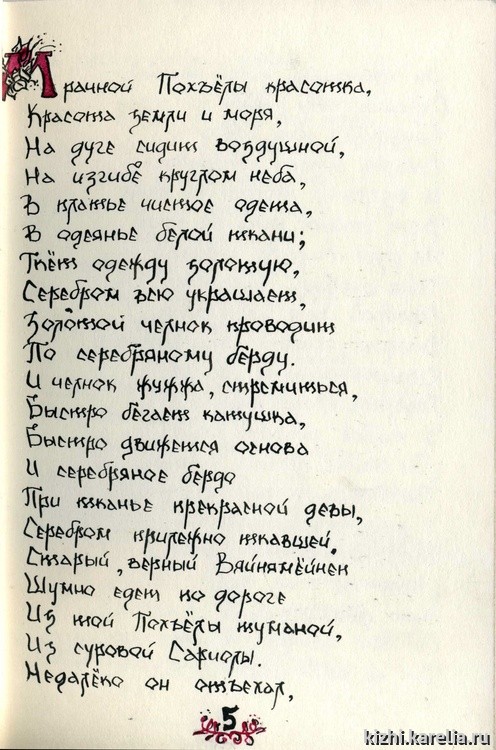 Мрачной Похъёлы красотка,
Красота земли и моря,
На дуге сидит воздушной,
На изгибе круглом неба,
В платье чистое одета,
В одеянье белой ткани;
Ткёт одежду золотую,
Серебром всю украшает,
Золотой челнок проводит
По серебряному бёрду.
И челнок жужжа, стремиться,
Быстро бегает катушка,
Быстро движется основа
И серебряное бёрдо
При тканье прекрасной девы,
Серебром прилежно ткавшей.
Старый, верный Вяйнямёйнен
Шумно едет по дороге
Из той Похъёлы туманой,
Из суровой Сариолы.
Недалёко он отъехал,
5
kizhi.karelia.ru